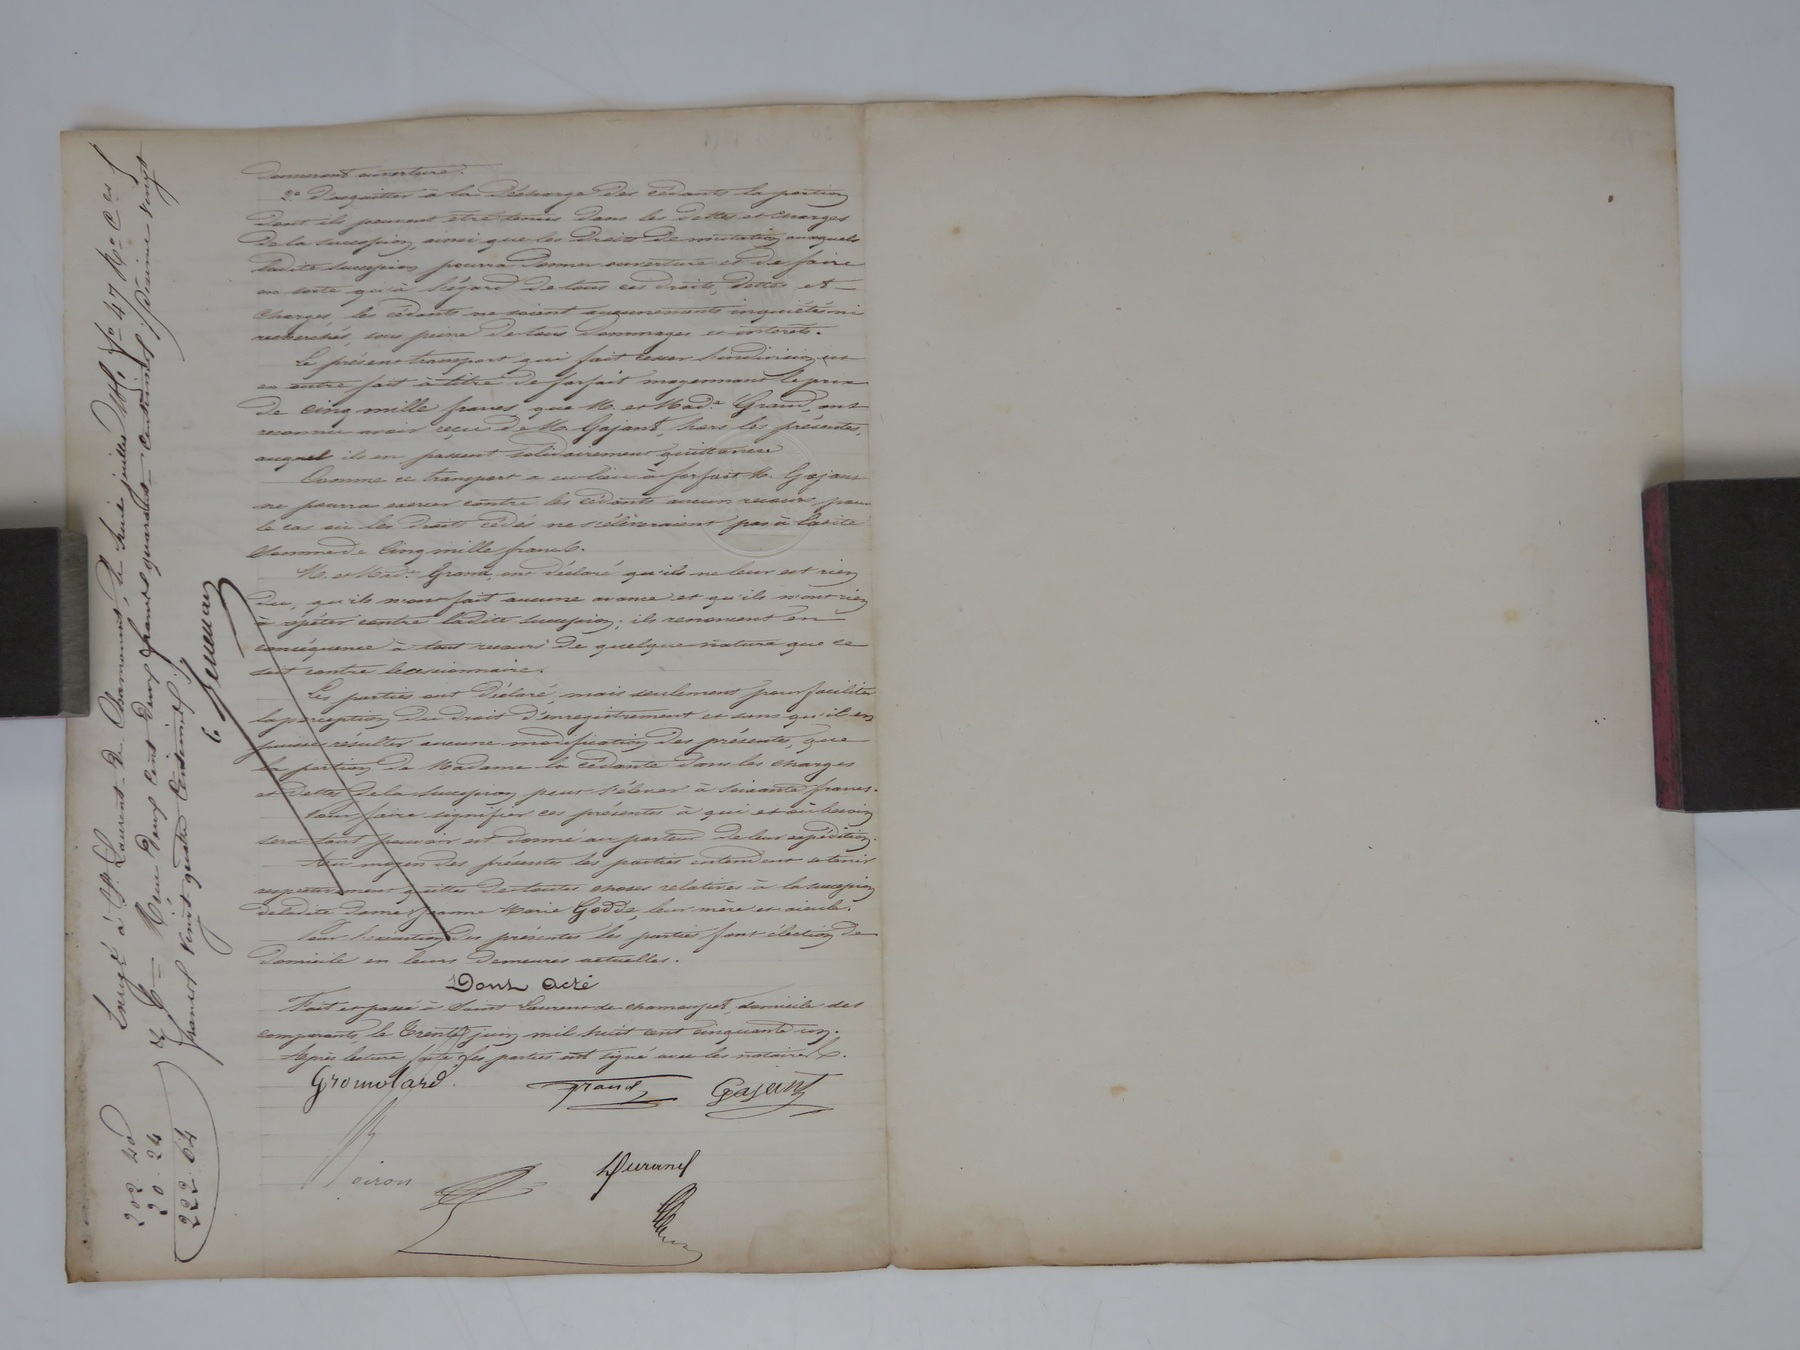 donneront ouverture.
2.o D'acquitter à la décharge des cédants la portion
dont ils peuvent être tenus dans les dettes et charges
de la succession, ainsi que les droits de mutation auxquels
ladite succession pourra donner ouverture et de faire
en sorte qu'à l'égard de tous ces droits, dettes et
charges, les cédants ne soient aucunement inquiétés ni
recherchés, sous peine de tous dommages et intérêts.
Le présent transport qui fait cesser l'indivision, est
en outre fait à titre de forfait moyennant le prix
de cinq mille francs que M. et Mad.e Grand, ont
reconnu avoir reçu de M. Gajant, hors les présentes,
auquel ils en passent solidairement quittance
Comme ce transport a eu lieu à forfait M. Gajant
ne pourra exercer contre les cédants aucun recours pour
le cas où les droits cédés ne s'élèveraient pas à ladite
somme de cinq mille francs.
M. et Mad.e Grand, ont déclaré qu'ils ne leur est rien
dû, qu'ils n'ont fait aucune avance et qu'ils n'ont rien
à répéter contre ladite succession; ils renoncent en
conséquence à tout recours de quelque nature que ce
soit contre le cessionnaire.
Les parties ont déclaré, mais seulement pour faciliter
la perception du droit d'enregistrement et sans qu'il en
puisse résulter aucune modification des présentes, que
la portion de Madame la cédante dans les charges
et dettes de la succession peut s'élever à soixante francs.
Pour faire signifier ces présentes à qui et où besoin
sera tout pouvoir est donné au porteur de leur expédition.
Au moyen des présentes les parties entendent se tenir
respectivement quittes de toutes choses relatives à la succession
de ladite dame Jeanne Marie Godde, leur mère et aïeule.
Pour l'exécution des présentes les parties font élection de
domicile en leurs demeures actuelles.
Dont Acte
Fait et passé à Saint Laurent de chamousset, domicile des
comparants, le Trente juin mil huit cent cinquante un.
Après lecture faite, les parties ont signé avec les notaires.
Gromolard Grand Gajant
Durand
Enregé à St Laurent de Chamousset, le huit juillet 1851, fo 47 Ro Ces
Reçu deux cent deux francs quarante centimes, décime vingt
francs vingt quatre centimes.
202 40
20 24
222 64